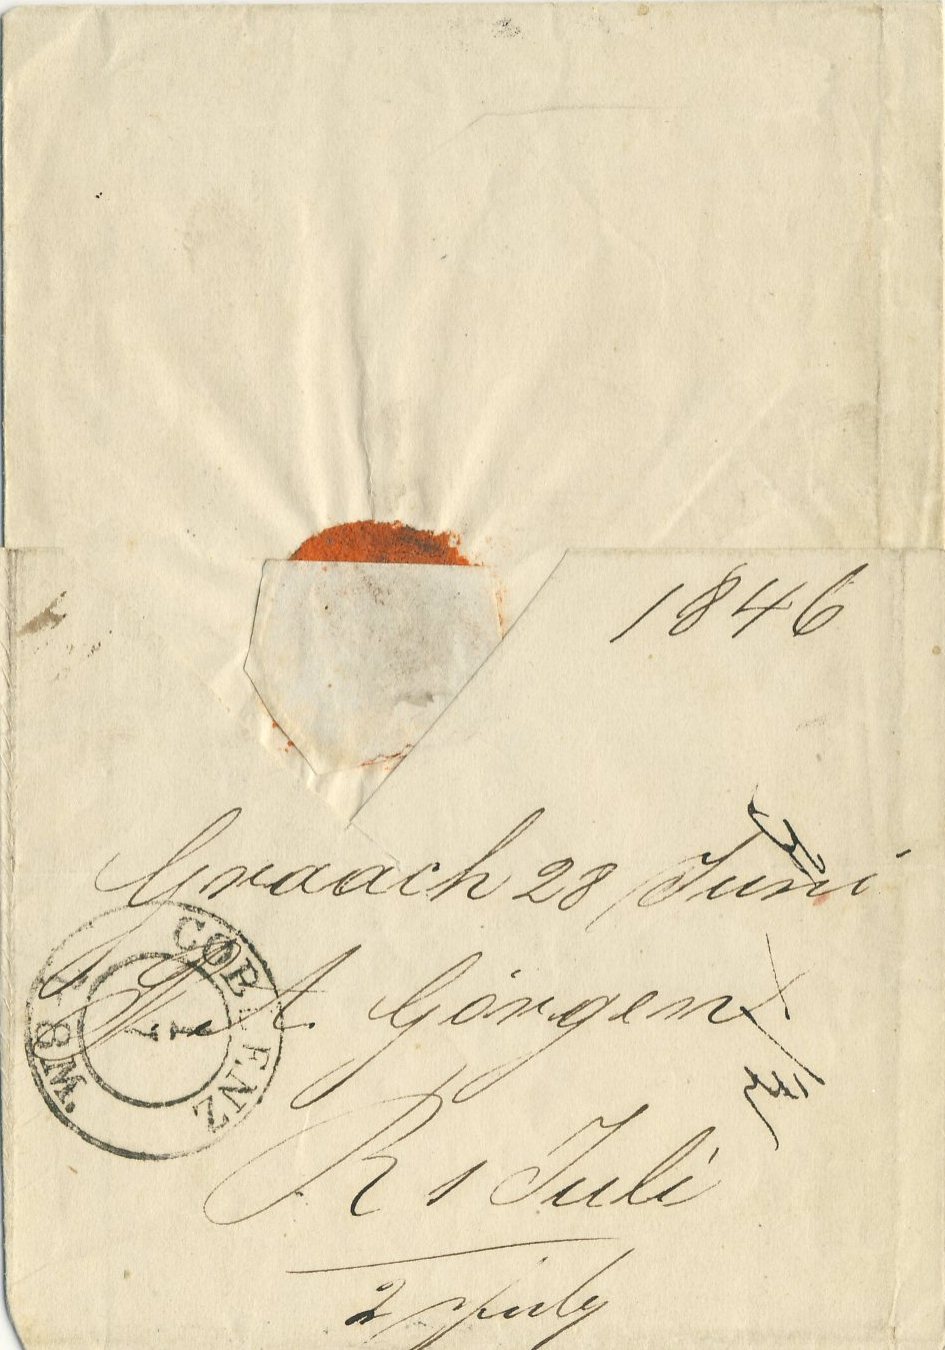 1846
Graach 28 Juni
A. Görgen
COBLENZ
1
7
7-8W.
R 1 Juli
2 July